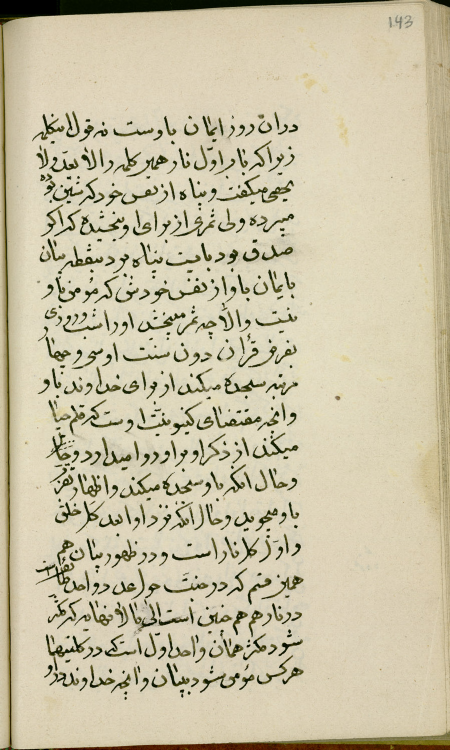 143
در آن روز ایمان باوست نه قول اینکلمه
زیرا که نار اول نار همین کلمه را لا یعد و لا
یحصی میگفت و پناه از نفس خود که شئون بوده
میبرده ولی ثمری از برای او نبخشیده که اگر
صدق بود بایست پناه برد بنقطه بیان
بایمان باو از نفس خودش که مؤمن باو
نیست والا چه ثمر میبخشد او را
بفرض قرآن دون سنت او سی و چهار
مرتبه سجده میکند از برای خداوند باو
و آنچه مقتضای کینونیت اوست که قلم حیا
میکند از ذکر او بر او وارد میاورد و
و حال آنکه باو سجده میکند و اظهار تقرب
باو میجوید و حال آنکه نزد او ابعد کل خلق
و اول کل نار است و در ظهور بیان هم
همین قسم که در جنت حروف واحد
در نار هم همچنین است الی ما لا نهایه که مکثر
شود مکثر همان واحد اول است که در کلشیئها
هر کس مؤمن شود ببیان و آنچه خداوند در او